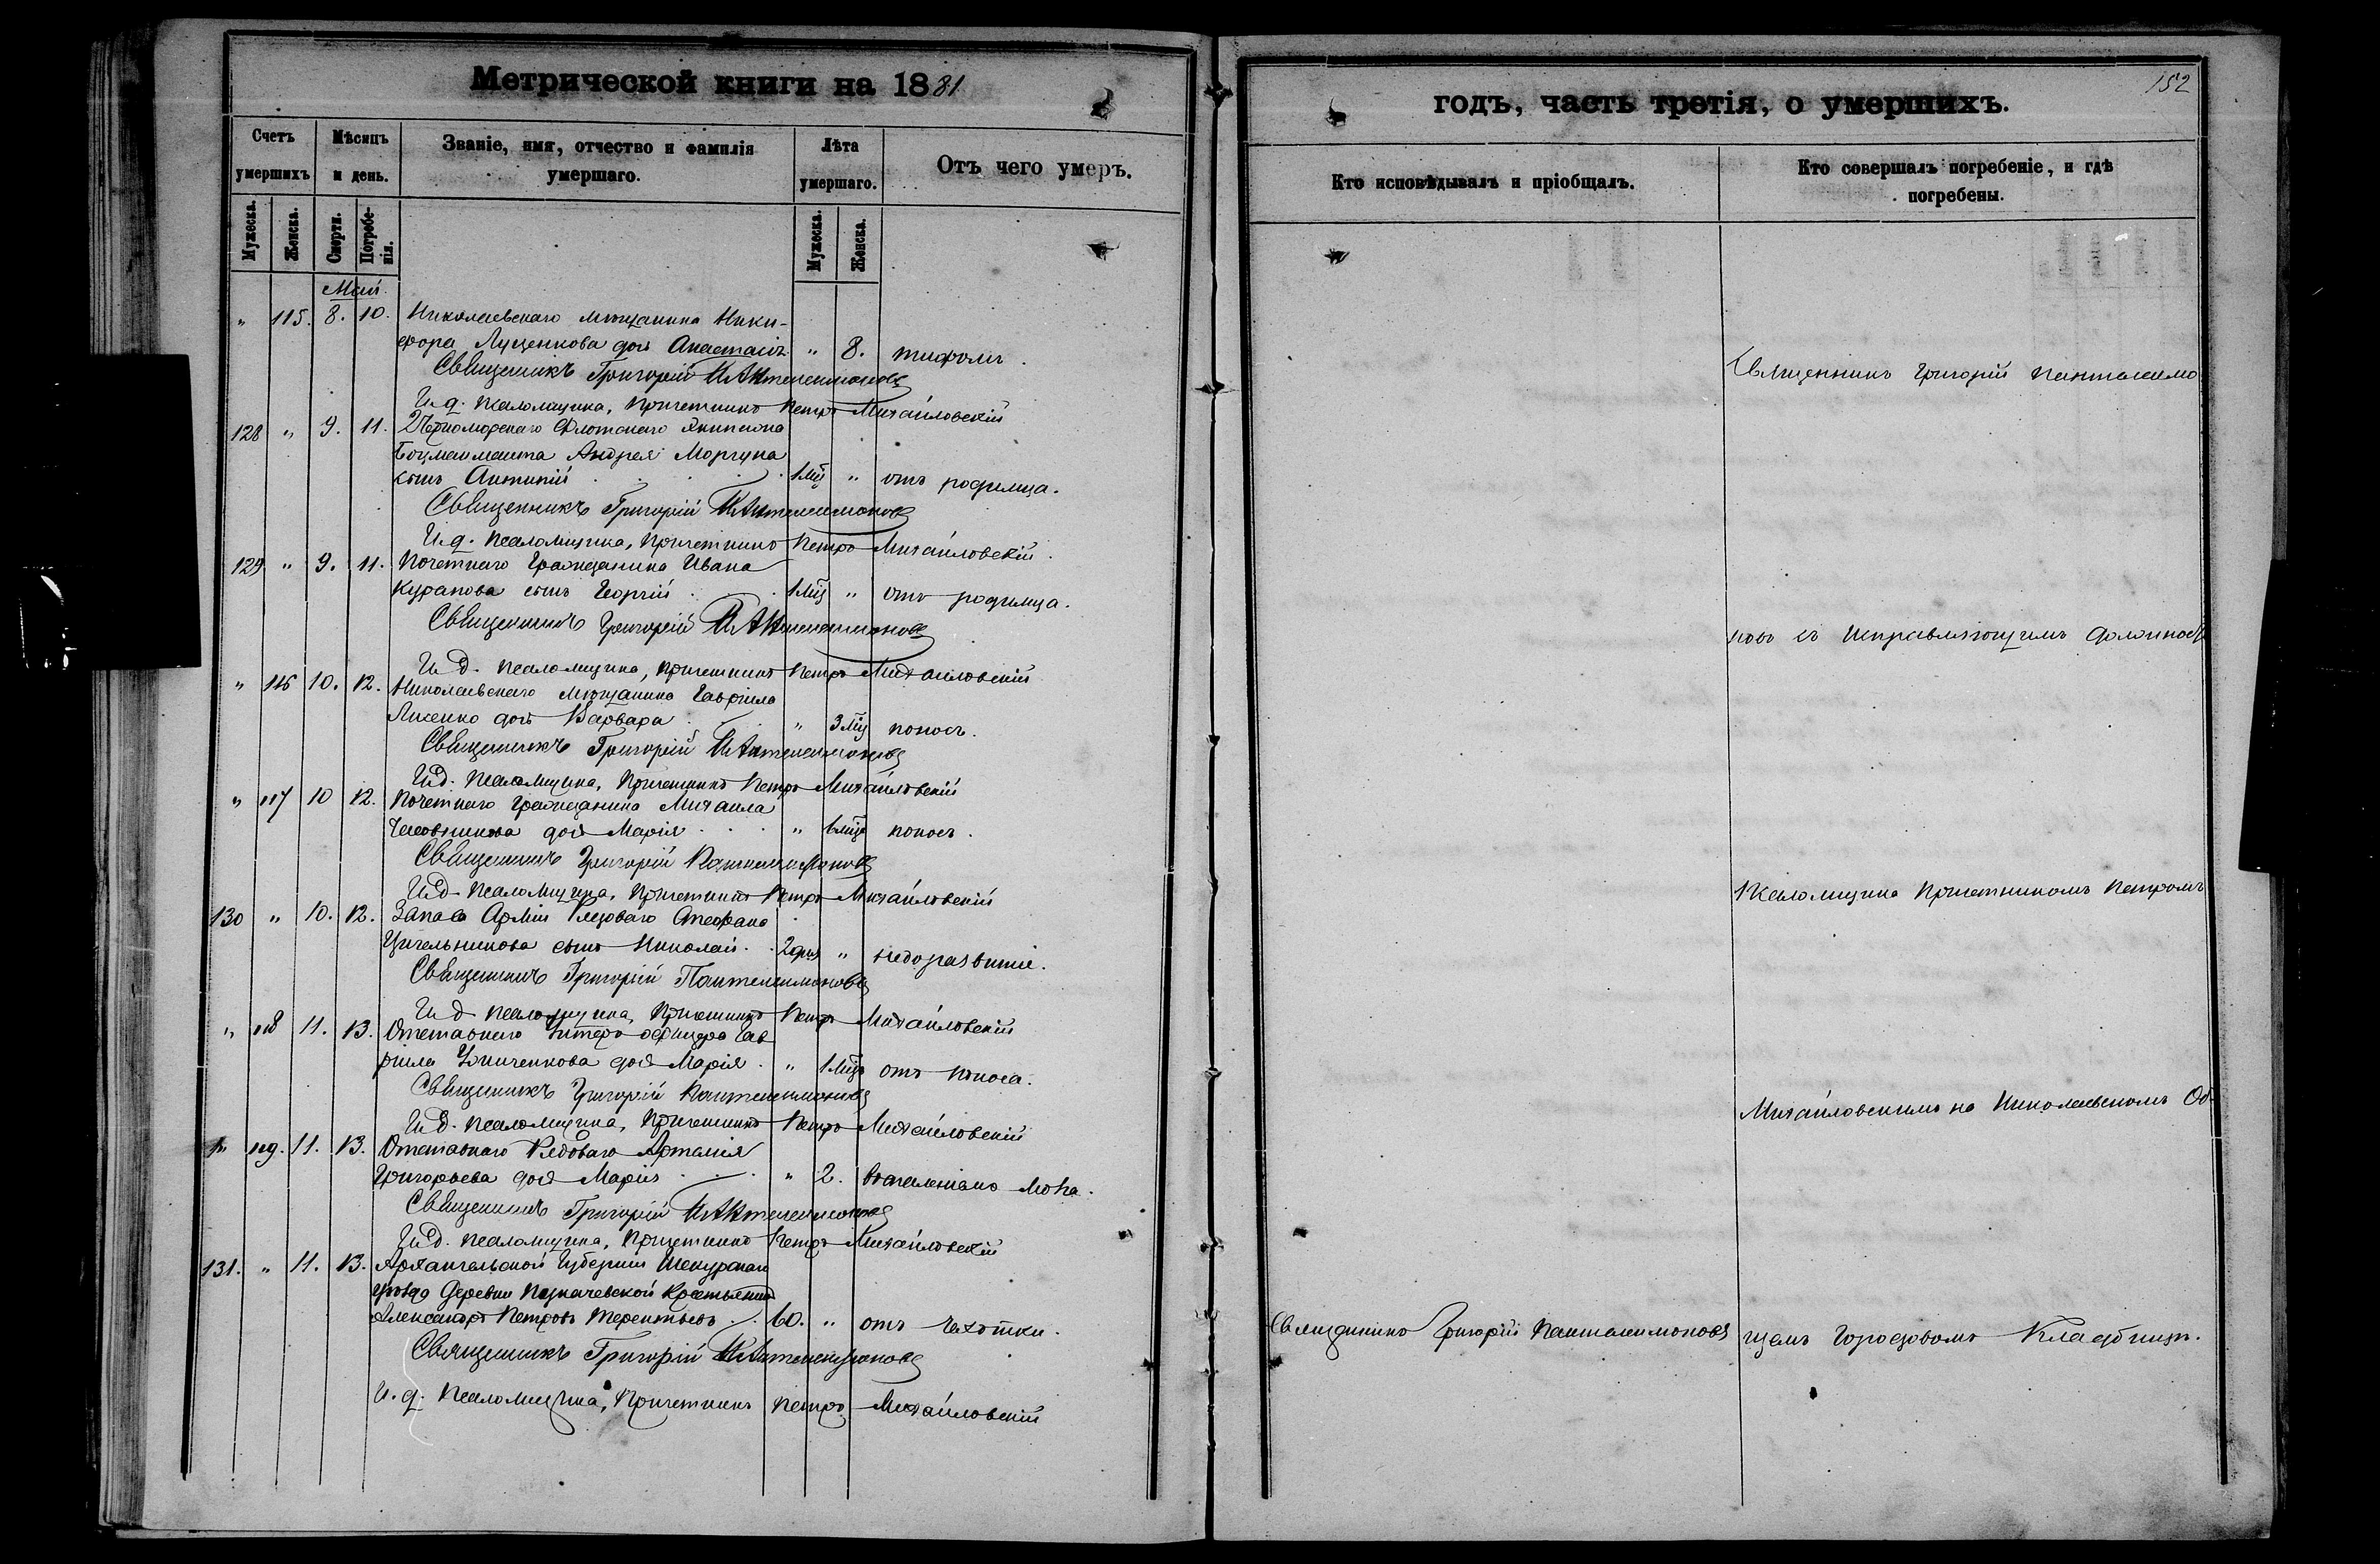 Метрической книги на 1881
Счетъ умершихъ
Мѣсяцъ и день.
Званіе, имя, отчество и фамилія умершаго.
Лѣта умершаго.
Отъ чего умеръ.
Мужеска. Женска. Смерти. Погребенія. Мужеска. Женска.
Май
" 115. 8. 10. Николаевскаго мѣщанина Ники-
фора Луценкова дочь Анастасія " 8. тифомъ.
Священникъ Григорій Пантелеимоновъ
И.д. Псаломщика, Причетникъ Петръ Михайловскій
128 " 9. 11. 2 Черноморскаго Флотскаго Экипажа
Боцманмата Андрея Моргуна
сынъ Антипій 1 мц " отъ родимца.
Священникъ Григорій Пантелеимоновъ
И.д. Псаломщика, Причетникъ Петръ Михайловскій
129 " 9. 11. Почетнаго Гражданина Ивана
Курапова сынъ Георгій 1 мц " отъ родимца.
Священникъ Григорій Пантелеимоновъ
И.д. Псаломщика, Причетникъ Петръ Михайловскій
" 116 10. 12. Николаевскаго мѣщанина Гавріила
дочь Варвара " 3 мц поносъ.
Священникъ Григорій Пантелеимоновъ
И.д. Псаломщика, Причетникъ Петръ Михайловскій
" 117 10 12. Почетнаго Гражданина Михаила
дочь Марія " поносъ.
Священникъ Григорій Пантелеимоновъ
И.д. Псаломщика, Причетникъ Петръ Михайловскій
130 " 10. 12. Запаса Арміи Рядоваго Стефана
Цигельникова сынъ Николай. 2 дня " недоразвитіе.
Священникъ Григорій Пантелеимоновъ
И.д. Псаломщика, Причетникъ Петръ Михайловскій
" 118 11. 13. Отставнаго Унтеръ-офицера Гав
ріила дочь Марія. " 1 мцъ отъ поноса.
Священникъ Григорій Пантелеимоновъ
И.д. Псаломщика, Причетникъ Петръ Михайловскій
" 119. 11. 13. Отставнаго Рядоваго
Григорьева дочь Марія " 2. мозга.
Священникъ Григорій Пантелеимоновъ
И.д. Псаломщика, Причетникъ Петръ Михайловскій
131. " 11. 13. Архангельской Губерніи Шенкурскаго
уѣзда Деревни Крестьянинъ
Александръ Петровъ Терентьевъ 60. " отъ чахотки.
Священникъ Григорій Пантелеимоновъ
И.д. Псаломщика, Причетникъ Петръ Михайловскій
152
годъ, часть третія, о умершихъ.
Кто исповѣдывалъ и пріобщалъ.
Кто совершалъ погребеніе, и гдѣ погребены.
Священникъ Григорій Пантелеимо
новъ съ Исправляющимъ Должность
Псаломщика Причетникомъ Петромъ
Михайловскимъ на Николаевскомъ Об
Священникъ Григорій Пантелеимоновъ
щемъ Городовомъ Кладбищѣ.